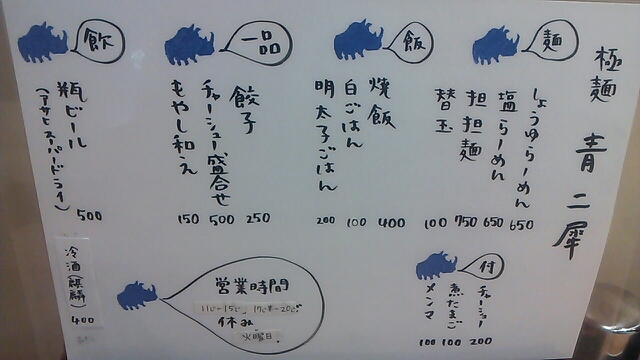 極麺 青二犀
麺
しょうゆらーめん 650
塩らーめん 650
担担麺 750
替玉 100
飯
焼飯 400
白ごはん 100
明太子ごはん 200
一品
餃子 250
チャーシュー盛合せ 500
もやし和え 150
飲
瓶ビール 500
(アサヒスーパードライ)
冷酒(麒麟) 400
付
チャーシュー 200
煮たまご 100
メンマ 100
営業時間
11じ~15じ 17じ半~20じ
休み
火曜日